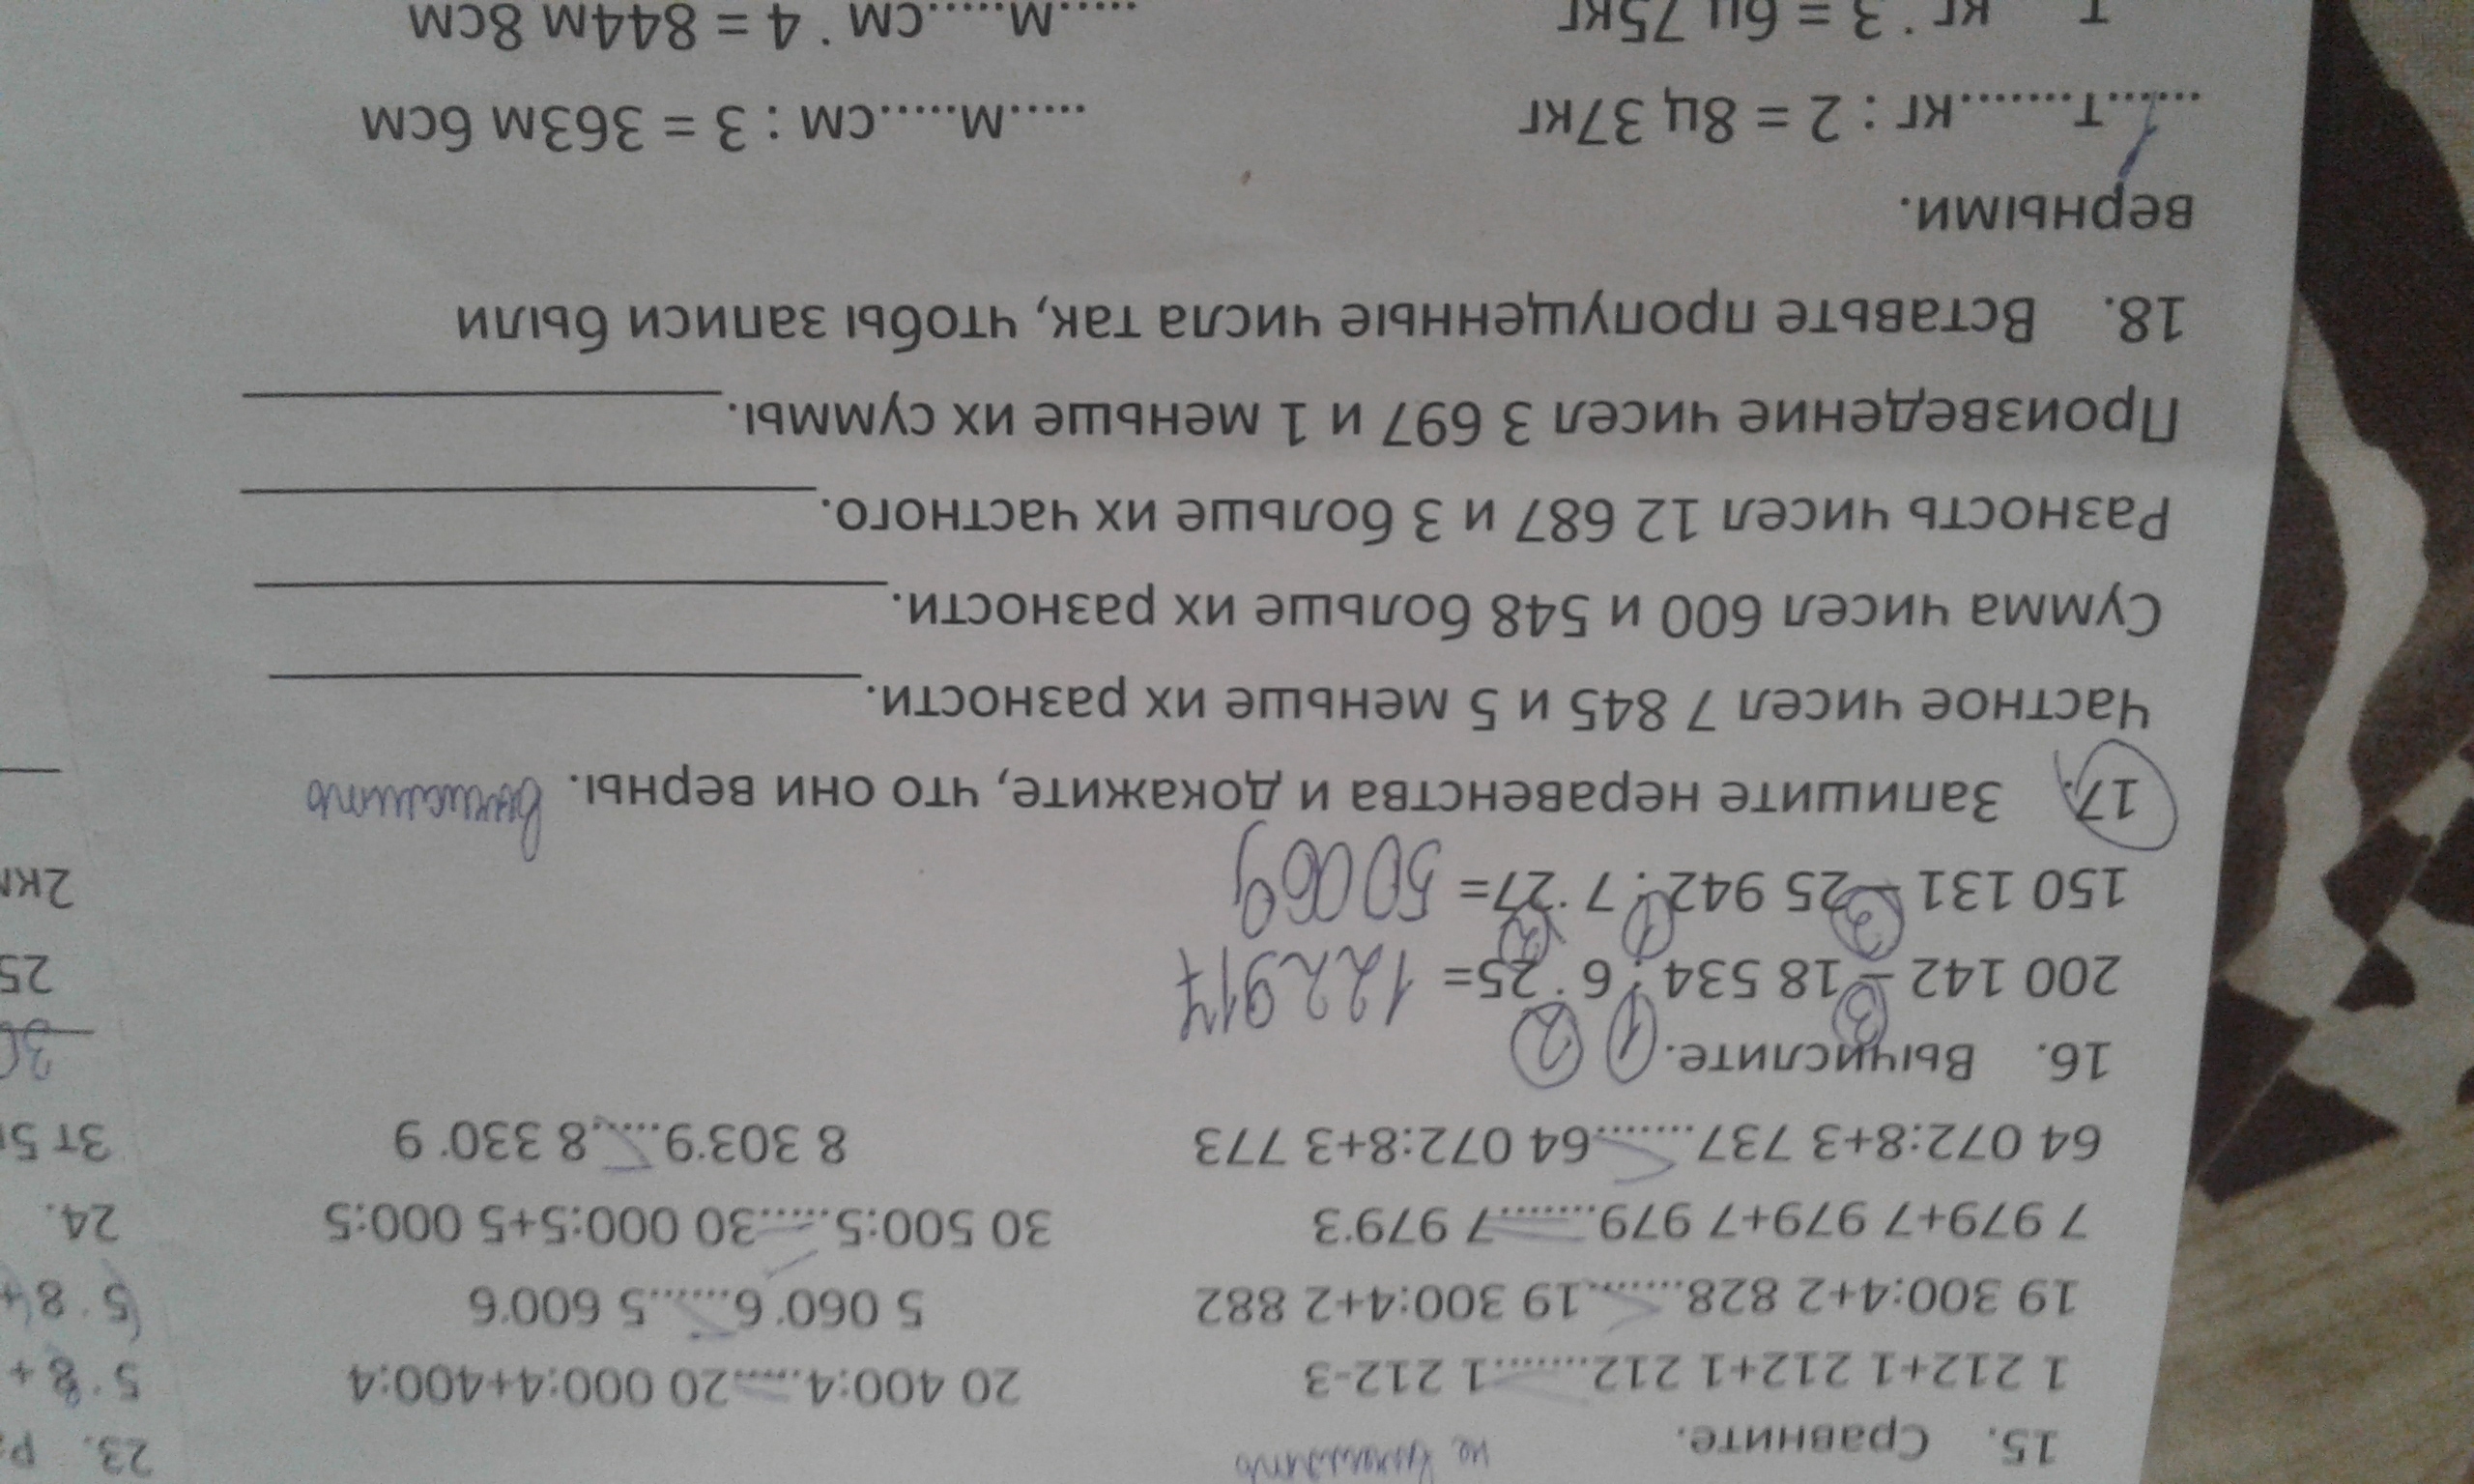 15. Сравните. не вычислять
1 212+1 212+1 212........1 212-3
20 400:4.......20 000:4+400:4
19 300:4+2 828........19 300:4+2 882
5 060·6.......5 600·6
7 979+7 979+7 979........7 979·3
30 500:5.......30 000:5+5 000:5
64 072:8+3 737........64 072:8+3 773
8 303·9......8 330·9
16. Вычислите.
200 142 – 18 534 : 6 · 25= 122917
150 131 – 25 942 : 7 · 27= 50069
17. Запишите неравенства и докажите, что они верны. вычислить
Частное чисел 7 845 и 5 меньше их разности.
Сумма чисел 600 и 548 больше их разности.
Разность чисел 12 687 и 3 больше их частного.
Произведение чисел 3 697 и 1 меньше их суммы.
18. Вставьте пропущенные числа так, чтобы записи были
верными.
.......т........кг : 2 = 8ц 37кг
......м......см : 3 = 363м 6см
т кг · 3 = 6ц 75кг
......м......см · 4 = 844м 8см
23.
5·8+
(5·8+
24.
3т 5
30
25
2км